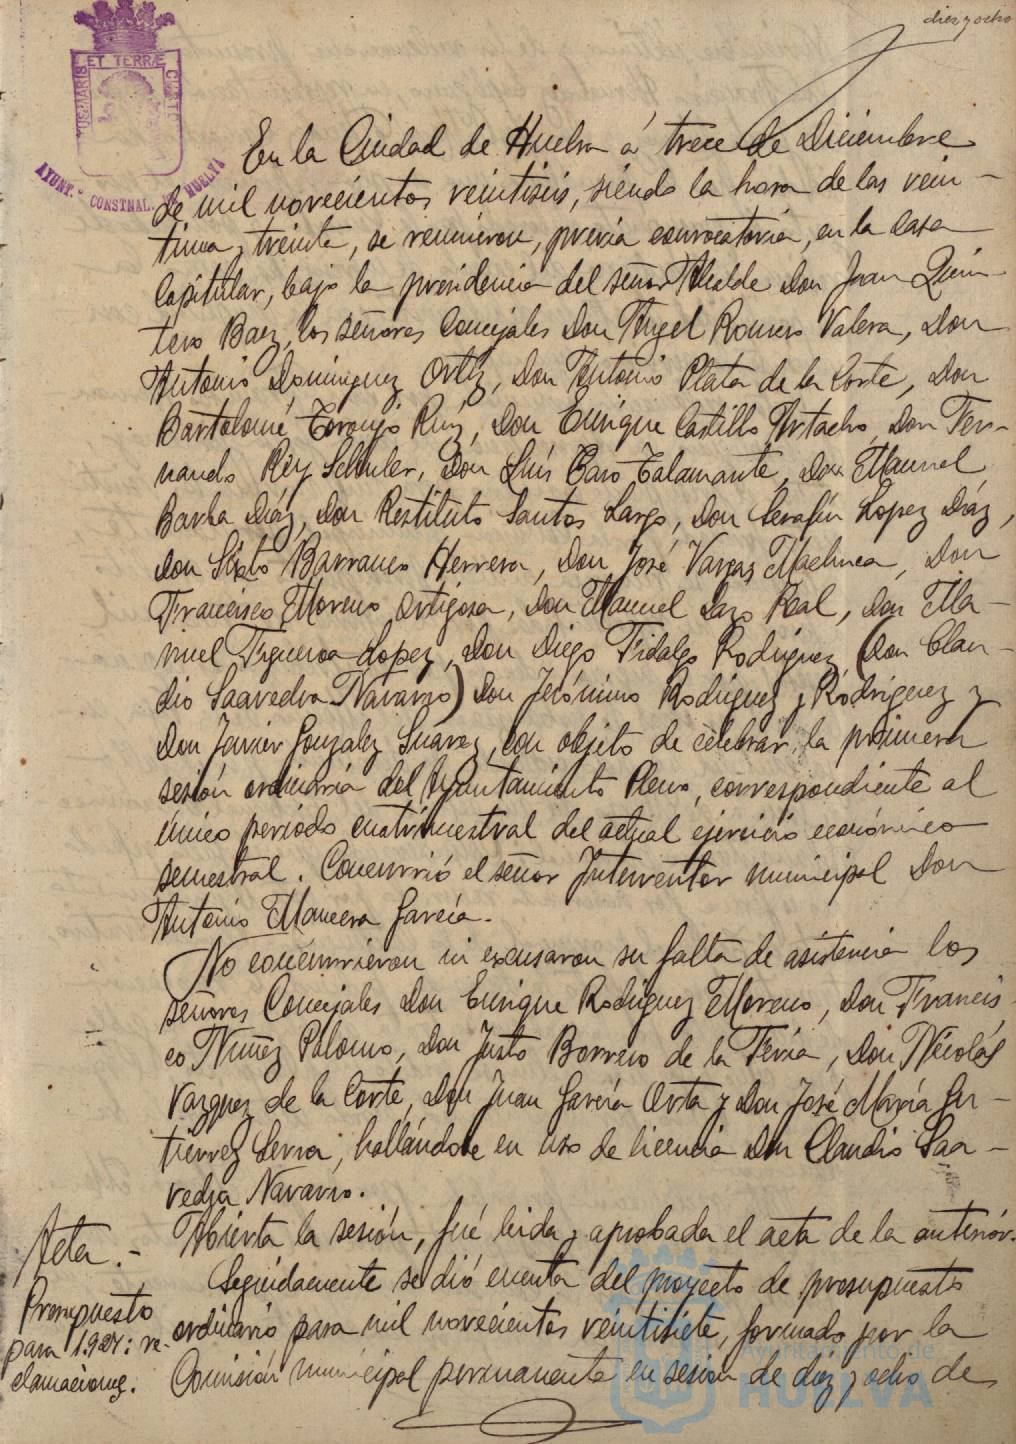 diez y ocho
PORTUS MARIS ET TERRÆ CUSTODIA
AYUNT.º CONSTNAL. DE HUELVA
En la Ciudad de Huelva á trece de Diciembre
de mil novecientos veintiseis, siendo la hora de las vein-
tiuna y treinta, se reunieron, previa convocatoria, en la Casa
Capitular, bajo la presidencia del señor Alcalde Don Juan Quin-
tero Baez, los señores Concejales Don Angel Romero Valera, Don
Antonio Dominguez Ortiz, Don Antonio Plata de la Corte, Don
Bartolomé Toronjo Ruiz, Don Enrique Castillo Artacho, Don Fer-
nando Rey Schuler, Don Luís Caro Talamante, Don Manuel
Barba Díaz, Don Restituto Santos Largo, Don Serafín Lopez Díaz,
Don Sixto Barranco Herrera, Don José Vargas Machuca, Don
Francisco Moreno Ortigosa, Don Manuel Lazo Real, Don Ma-
nuel Figueroa Lopez, Don Diego Fidalgo Rodriguez, (Don Clau-
dio Saavedra Navarro) Don Jerónimo Rodriguez y Rodriguez y
Don Javier Gonzalez Suarez, con objeto de celebrar la primera
sesión ordinaria del Ayuntamiento Pleno, correspondiente al
único periodo cuatrimestral del actual ejercicio económico
semestral. Concurrió el señor Interventor municipal Don
Antonio Mancera García.
No concurrieron ni excusaron su falta de asistencia los
señores Concejales Don Enrique Rodriguez Moreno, Don Francis-
co Nuñez Palomo, Don Justo Borrero de la Feria, Don Nicolás
Vazquez de la Corte, Don Juan García Orta y Don José María Gu-
tierrez Serra, hallándose en uso de licencia Don Claudio Saa-
vedra Navarro.
Acta.- Abierta la sesión, fué leida y aprobada el acta de la anterior.
Seguidamente se dió cuenta del proyecto de presupuesto
Presupuesto
para 1.927: re-
clamaciones.
ordinario para mil novecientos veintisiete, formado por la
Comisión municipal permanente en sesión de diez y ocho de
Ayuntamiento de
HUELVA